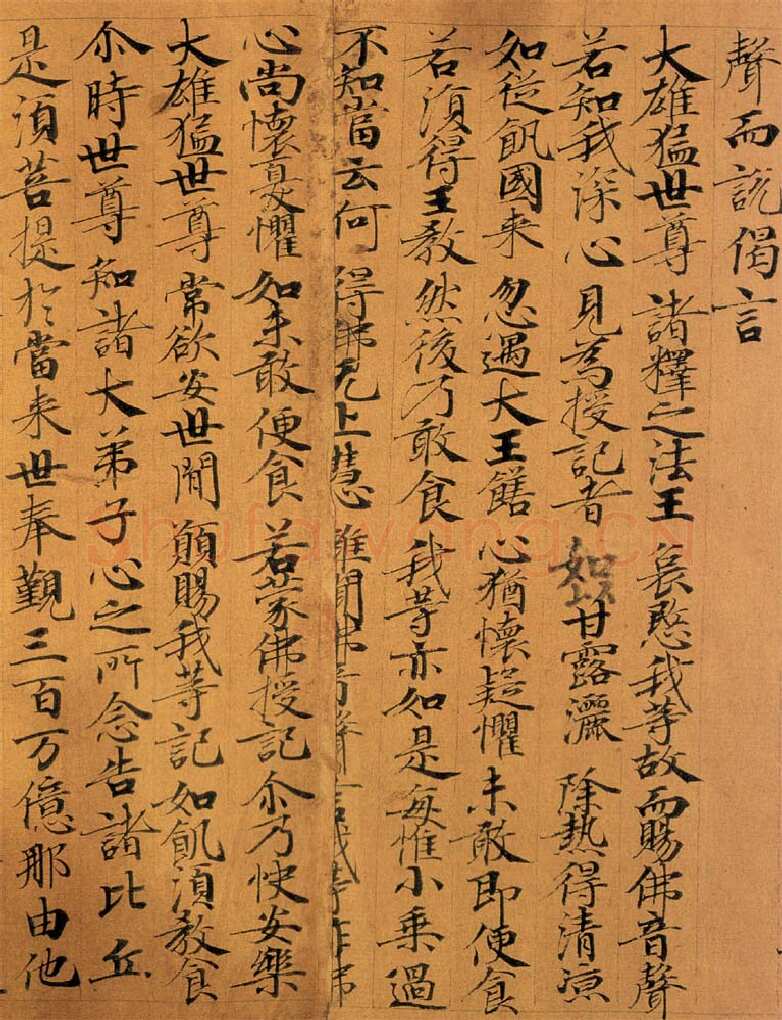 聲而說偈言
大雄猛世尊 諸釋之法王 哀愍我等故 而賜佛音聲
若知我深心 見為授記者 如以甘露灑 除熱得清凉
如從飢國来 忽遇大王饍 心猶懷疑懼 未敢即便食
若湏得王教 然後乃敢食 我等亦如是 每惟小乘過
不知當云何 得佛无上慧 雖聞佛音聲 言我等作佛
心尚懷憂懼 如未敢便食 若蒙佛授記 尒乃快安樂
大雄猛世尊 常欲安世間 願賜我等記 如飢湏教食
尒時世尊知諸大弟子心之所念告諸比丘
是湏菩提於當来世奉覲三百万億那由他
Shufawang.CN